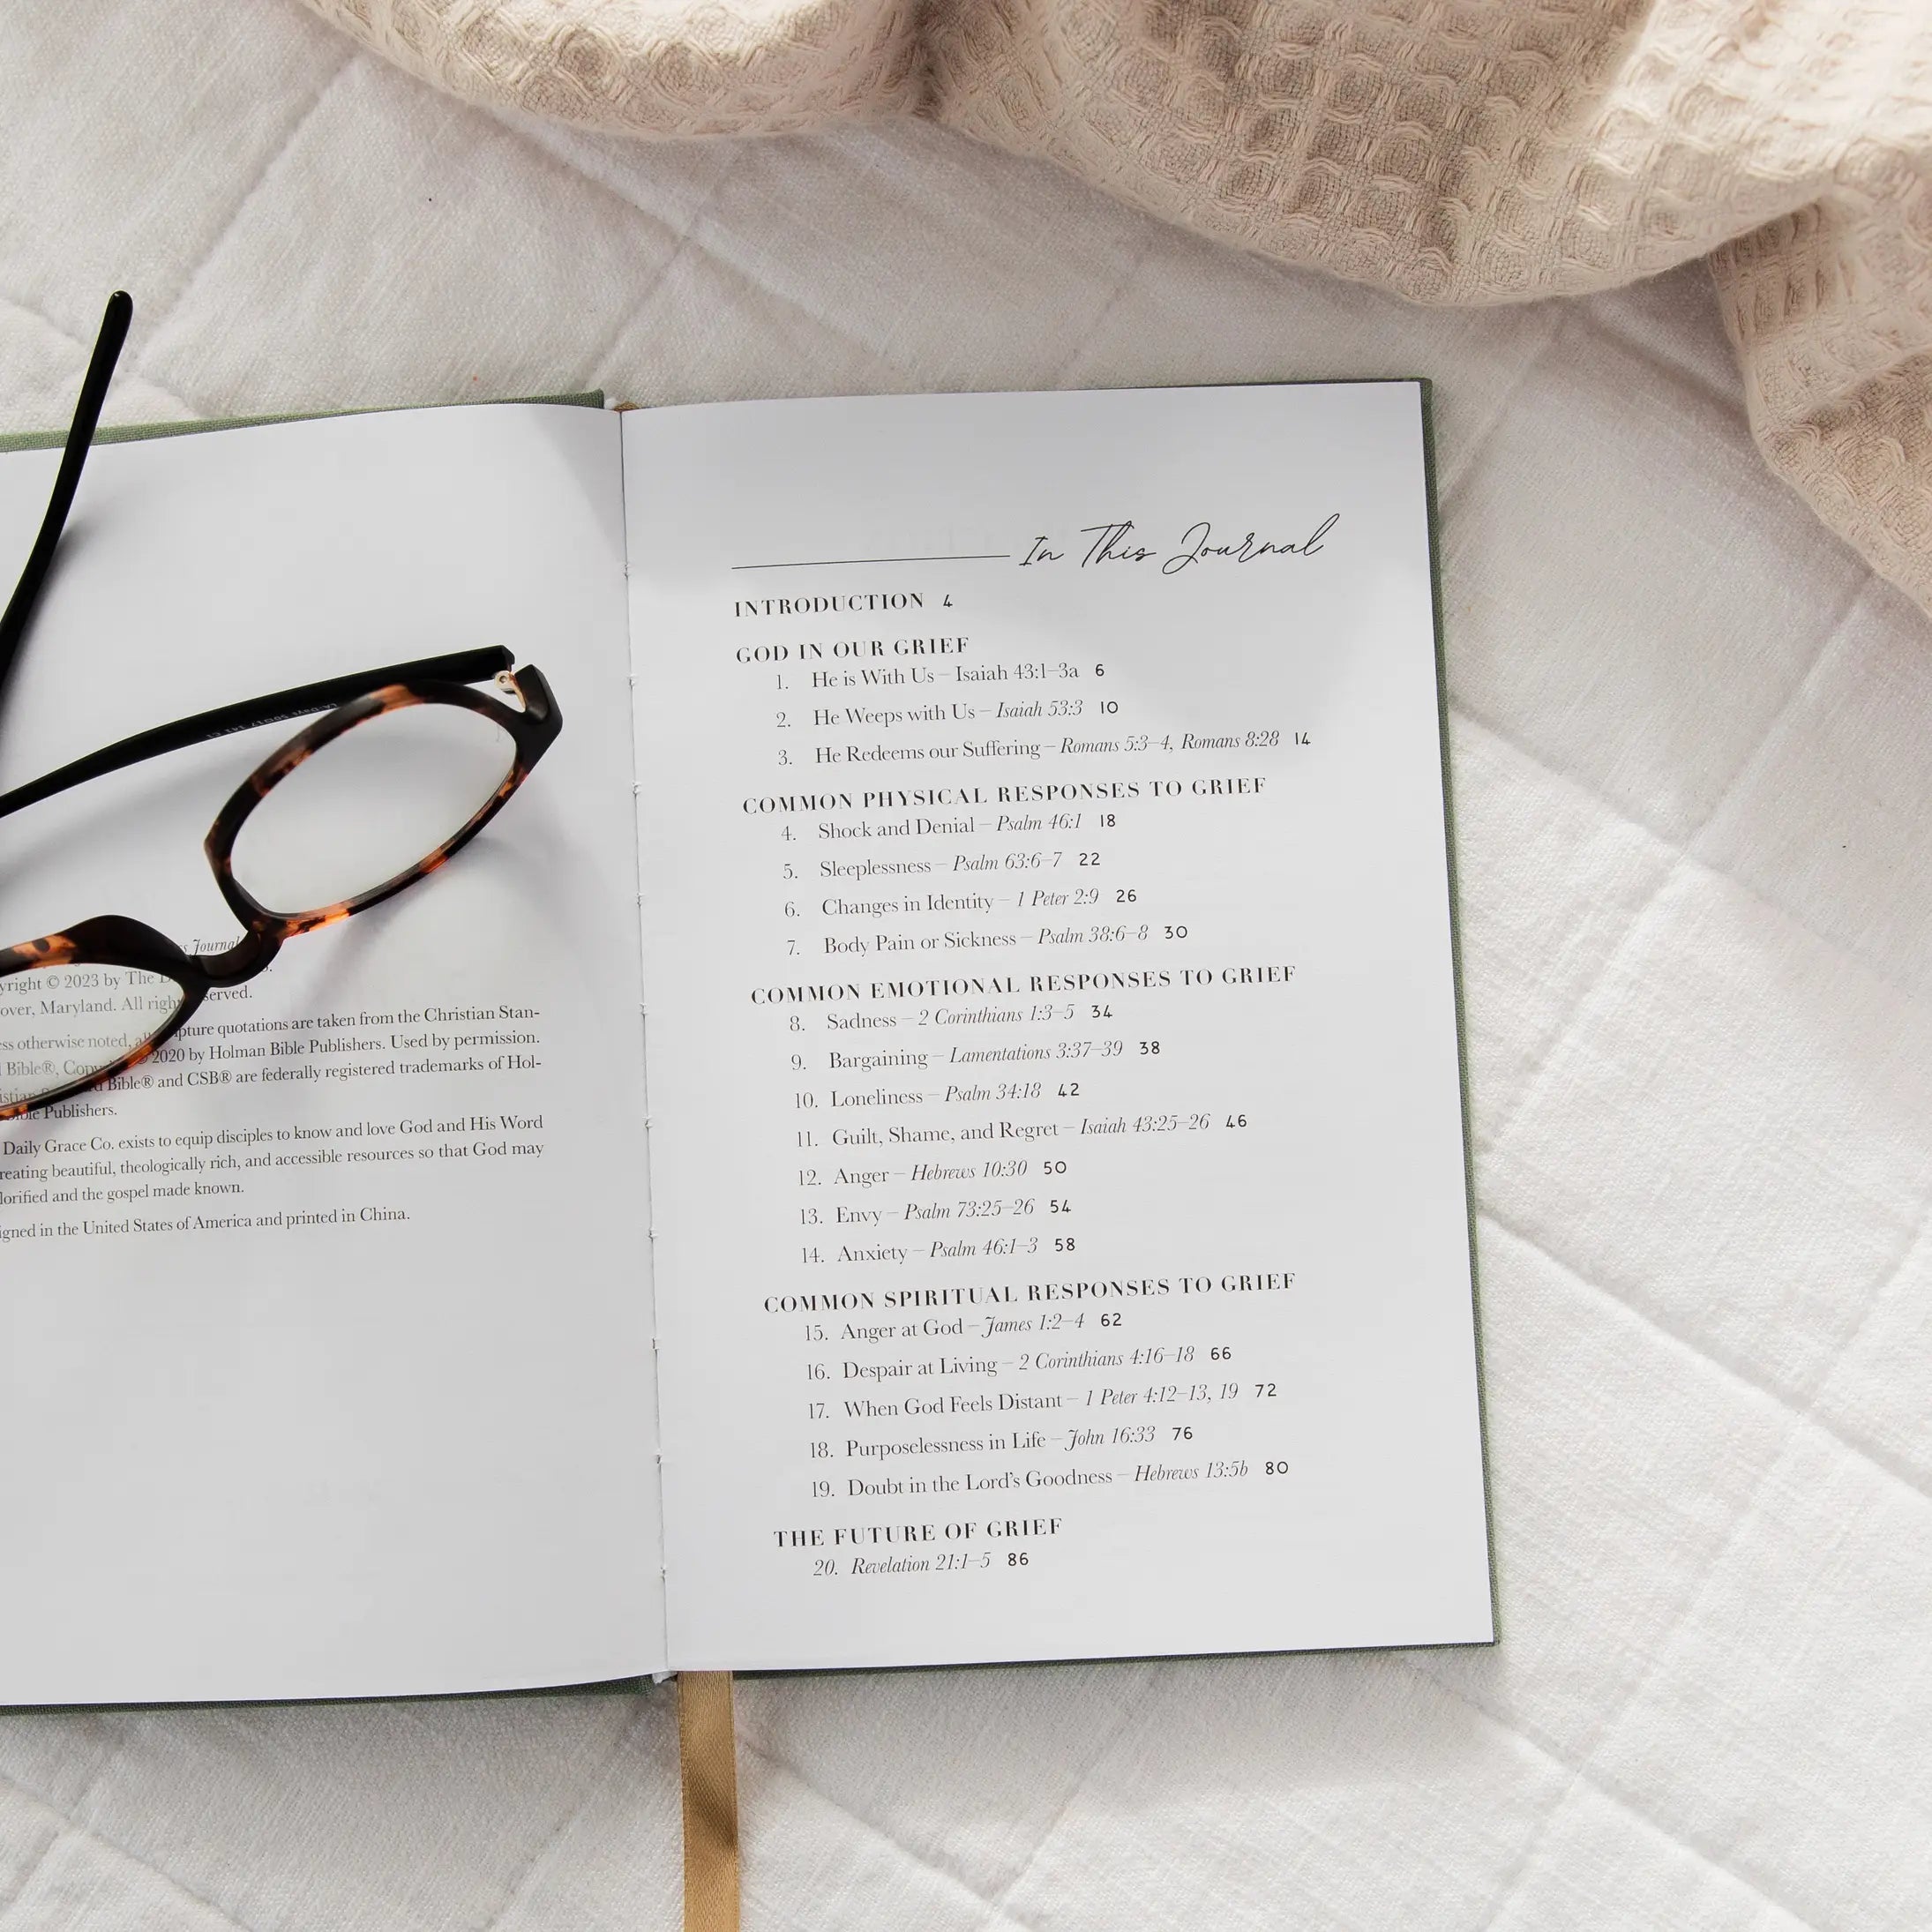 Journal
yright © 2023 by The D
over, Maryland. All righ served.
ess otherwise noted, al pture quotations are taken from the Christian Stan-
Bible®, Copy 2020 by Holman Bible Publishers. Used by permission.
istian d Bible® and CSB® are federally registered trademarks of Hol-
Bible Publishers.
Daily Grace Co. exists to equip disciples to know and love God and His Word
reating beautiful, theologically rich, and accessible resources so that God may
lorified and the gospel made known.
igned in the United States of America and printed in China.
In This Journal
INTRODUCTION 4
GOD IN OUR GRIEF
1. He is With Us – Isaiah 43:1–3a 6
2. He Weeps with Us – Isaiah 53:3 10
3. He Redeems our Suffering – Romans 5:3–4, Romans 8:28 14
COMMON PHYSICAL RESPONSES TO GRIEF
4. Shock and Denial – Psalm 46:1 18
5. Sleeplessness – Psalm 63:6–7 22
6. Changes in Identity – 1 Peter 2:9 26
7. Body Pain or Sickness – Psalm 38:6–8 30
COMMON EMOTIONAL RESPONSES TO GRIEF
8. Sadness – 2 Corinthians 1:3–5 34
9. Bargaining – Lamentations 3:37–39 38
10. Loneliness – Psalm 34:18 42
11. Guilt, Shame, and Regret – Isaiah 43:25–26 46
12. Anger – Hebrews 10:30 50
13. Envy – Psalm 73:25–26 54
14. Anxiety – Psalm 46:1–3 58
COMMON SPIRITUAL RESPONSES TO GRIEF
15. Anger at God – James 1:2–4 62
16. Despair at Living – 2 Corinthians 4:16–18 66
17. When God Feels Distant – 1 Peter 4:12–13, 19 72
18. Purposelessness in Life – John 16:33 76
19. Doubt in the Lord's Goodness – Hebrews 13:5b 80
THE FUTURE OF GRIEF
20. Revelation 21:1–5 86